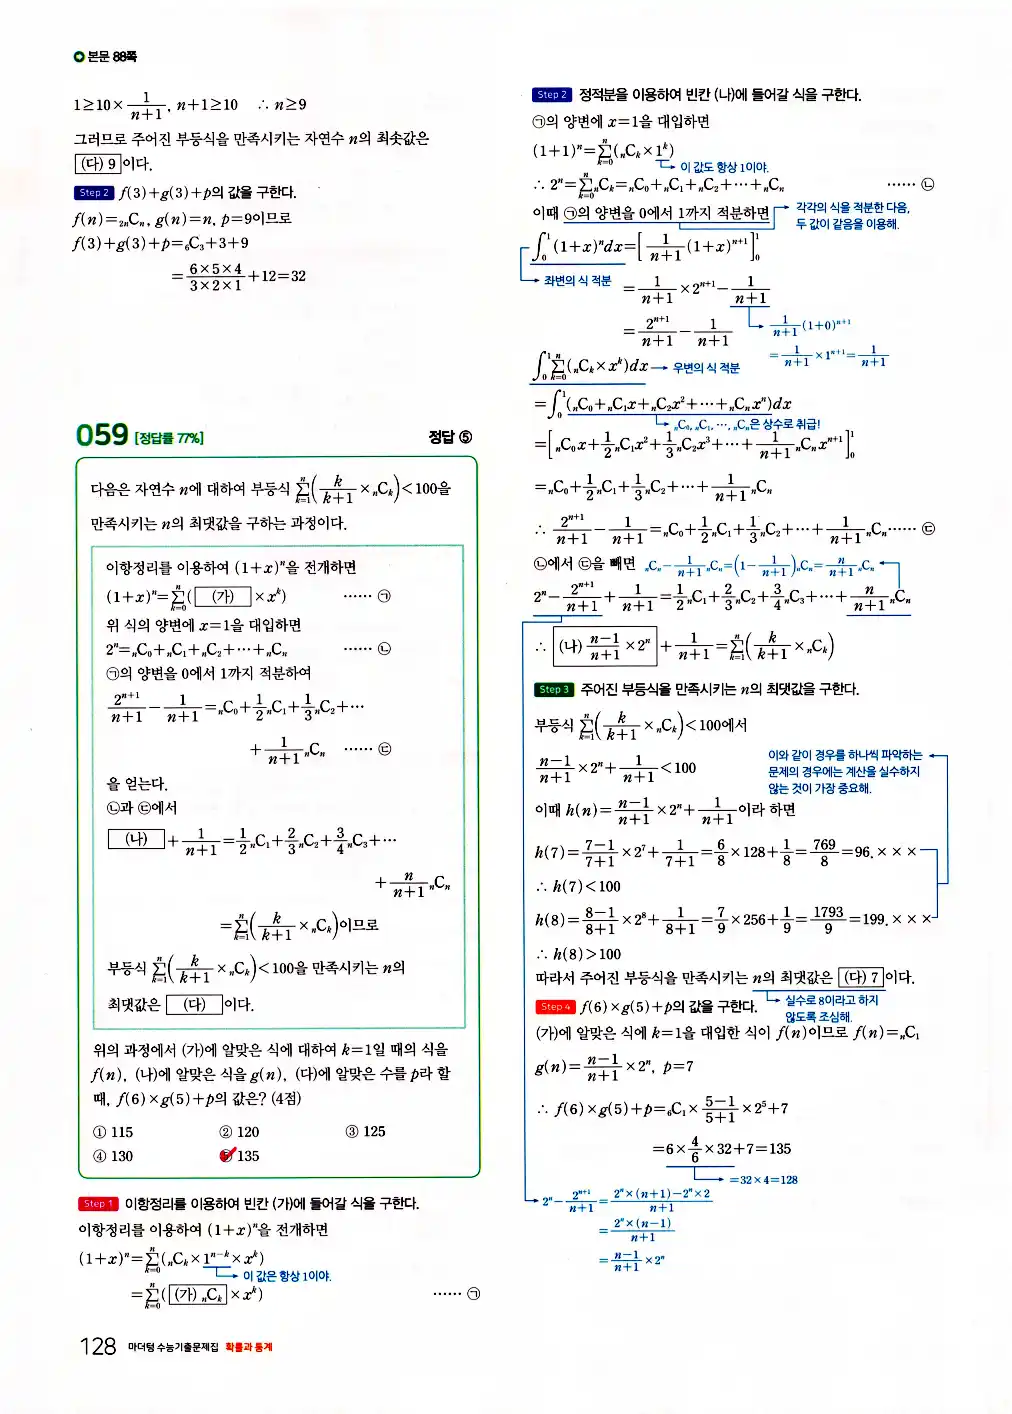 본문 88쪽
1≥10×1/(n+1), n+1≥10 ∴ n≥9
그러므로 주어진 부등식을 만족시키는 자연수 n의 최솟값은
(다) 9 이다.
Step 2 f(3)+g(3)+p의 값을 구한다.
f(n)=₂ₙCₙ, g(n)=n, p=9이므로
f(3)+g(3)+p=₆C₃+3+9
=(6×5×4)/(3×2×1)+12=32
059 [정답률 77%] 정답 ⑤
다음은 자연수 n에 대하여 부등식 Σ(k=1→n)(k/(k+1)×ₙCₖ)<100을
만족시키는 n의 최댓값을 구하는 과정이다.
이항정리를 이용하여 (1+x)ⁿ을 전개하면
(1+x)ⁿ=Σ(k=0→n)( (가) ×xᵏ) …… ㉠
위 식의 양변에 x=1을 대입하면
2ⁿ=ₙC₀+ₙC₁+ₙC₂+⋯+ₙCₙ …… ㉡
㉠의 양변을 0에서 1까지 적분하여
2ⁿ⁺¹/(n+1)-1/(n+1)=ₙC₀+1/2 ₙC₁+1/3 ₙC₂+⋯
+1/(n+1) ₙCₙ …… ㉢
을 얻는다.
㉡과 ㉢에서
(나) +1/(n+1)=1/2 ₙC₁+2/3 ₙC₂+3/4 ₙC₃+⋯
+n/(n+1) ₙCₙ
=Σ(k=1→n)(k/(k+1)×ₙCₖ)이므로
부등식 Σ(k=1→n)(k/(k+1)×ₙCₖ)<100을 만족시키는 n의
최댓값은 (다) 이다.
위의 과정에서 (가)에 알맞은 식에 대하여 k=1일 때의 식을
f(n), (나)에 알맞은 식을 g(n), (다)에 알맞은 수를 p라 할
때, f(6)×g(5)+p의 값은? (4점)
① 115 ② 120 ③ 125
④ 130 ⑤ 135
Step 1 이항정리를 이용하여 빈칸 (가)에 들어갈 식을 구한다.
이항정리를 이용하여 (1+x)ⁿ을 전개하면
(1+x)ⁿ=Σ(k=0→n)(ₙCₖ×1ⁿ⁻ᵏ×xᵏ)
이 값은 항상 1이야.
=Σ(k=0→n)( (가) ₙCₖ ×xᵏ) …… ㉠
128 마더텅 수능기출문제집 확률과 통계
Step 2 정적분을 이용하여 빈칸 (나)에 들어갈 식을 구한다.
㉠의 양변에 x=1을 대입하면
(1+1)ⁿ=Σ(k=0→n)(ₙCₖ×1ᵏ)
이 값도 항상 1이야.
∴ 2ⁿ=Σ(k=0→n)ₙCₖ=ₙC₀+ₙC₁+ₙC₂+⋯+ₙCₙ …… ㉡
이때 ㉠의 양변을 0에서 1까지 적분하면
각각의 식을 적분한 다음,
두 값이 같음을 이용해.
∫₀¹(1+x)ⁿdx=[1/(n+1)(1+x)ⁿ⁺¹]₀¹
좌변의 식 적분
=1/(n+1)×2ⁿ⁺¹-1/(n+1)
=2ⁿ⁺¹/(n+1)-1/(n+1)
1/(n+1)(1+0)ⁿ⁺¹
=1/(n+1)×1ⁿ⁺¹=1/(n+1)
∫₀¹Σ(k=0→n)(ₙCₖ×xᵏ)dx → 우변의 식 적분
=∫₀¹(ₙC₀+ₙC₁x+ₙC₂x²+⋯+ₙCₙxⁿ)dx
ₙC₀, ₙC₁, ⋯, ₙCₙ은 상수로 취급!
=[ₙC₀x+1/2 ₙC₁x²+1/3 ₙC₂x³+⋯+1/(n+1) ₙCₙxⁿ⁺¹]₀¹
=ₙC₀+1/2 ₙC₁+1/3 ₙC₂+⋯+1/(n+1) ₙCₙ
∴ 2ⁿ⁺¹/(n+1)-1/(n+1)=ₙC₀+1/2 ₙC₁+1/3 ₙC₂+⋯+1/(n+1) ₙCₙ …… ㉢
㉡에서 ㉢을 빼면 ₙCₙ-1/(n+1) ₙCₙ=(1-1/(n+1))ₙCₙ=n/(n+1) ₙCₙ
2ⁿ-2ⁿ⁺¹/(n+1)+1/(n+1)=1/2 ₙC₁+2/3 ₙC₂+3/4 ₙC₃+⋯+n/(n+1) ₙCₙ
∴ (나) (n-1)/(n+1)×2ⁿ +1/(n+1)=Σ(k=1→n)(k/(k+1)×ₙCₖ)
Step 3 주어진 부등식을 만족시키는 n의 최댓값을 구한다.
부등식 Σ(k=1→n)(k/(k+1)×ₙCₖ)<100에서
(n-1)/(n+1)×2ⁿ+1/(n+1)<100
이와 같이 경우를 하나씩 파악하는
문제의 경우에는 계산을 실수하지
않는 것이 가장 중요해.
이때 h(n)=(n-1)/(n+1)×2ⁿ+1/(n+1)이라 하면
h(7)=(7-1)/(7+1)×2⁷+1/(7+1)=6/8×128+1/8=769/8=96.×××
∴ h(7)<100
h(8)=(8-1)/(8+1)×2⁸+1/(8+1)=7/9×256+1/9=1793/9=199.×××
∴ h(8)>100
따라서 주어진 부등식을 만족시키는 n의 최댓값은 (다) 7 이다.
실수로 8이라고 하지
않도록 조심해.
Step 4 f(6)×g(5)+p의 값을 구한다.
(가)에 알맞은 식에 k=1을 대입한 식이 f(n)이므로 f(n)=ₙC₁
g(n)=(n-1)/(n+1)×2ⁿ, p=7
∴ f(6)×g(5)+p=₆C₁×(5-1)/(5+1)×2⁵+7
=6×4/6×32+7=135
=32×4=128
2ⁿ-2ⁿ⁺¹/(n+1)=(2ⁿ×(n+1)-2ⁿ×2)/(n+1)
=(2ⁿ×(n-1))/(n+1)
=(n-1)/(n+1)×2ⁿ